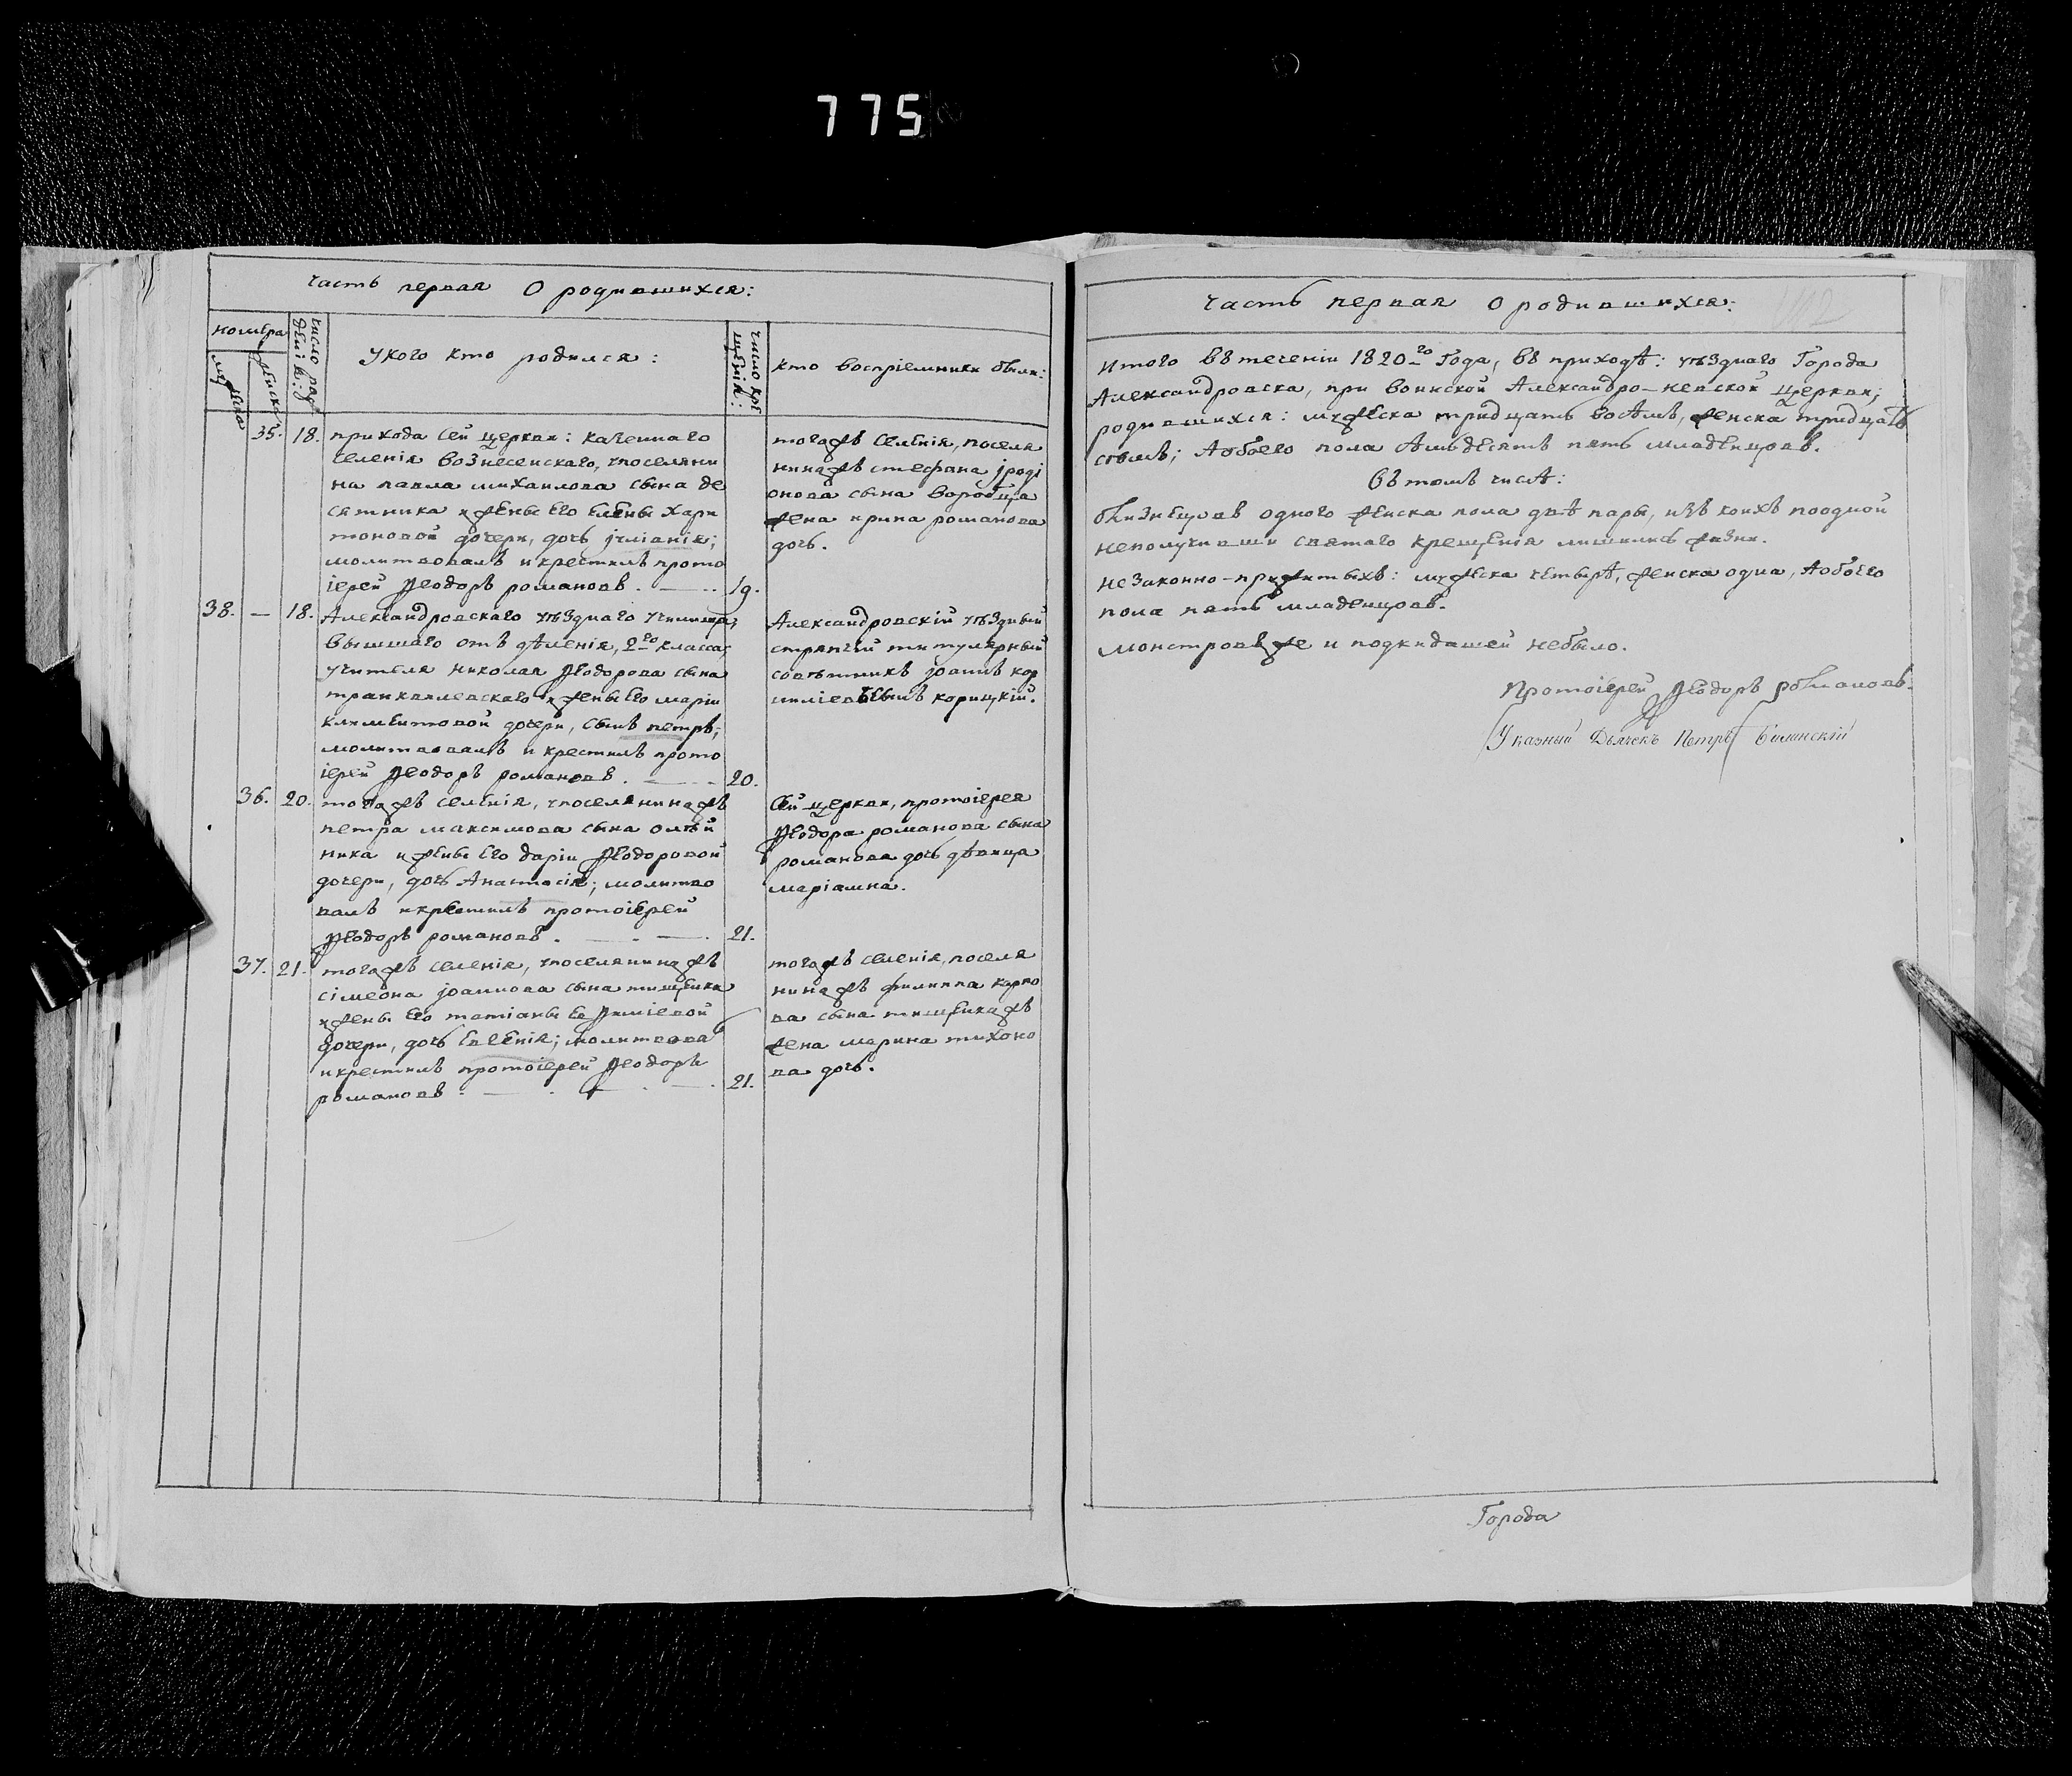 775
Часть первая О родившихся:
номера
мужеска
женска
число рожденій:
У кого кто родился:
число крещеній:
кто воспріемники были:
35. 18. прихода сей церкви: казеннаго
селенія вознесенскаго, упоселяни
на павла михаилова сына де
сятника и жены его елены хари
тоновой дочери, дочь іуліанія;
молитвовалъ и крестилъ прото
іерей Ѳеодоръ романовъ. 19.
тогожъ селенія, поселя
нинажъ стефана іроді
онова сына
жена ирина романова
дочь.
38. — 18. Александровскаго уѣзднаго училища,
вышшаго отъ дѣленія, 2го класса,
учителя николая Ѳеодорова сына
транквилевскаго и жены его маріи
климентовой дочери, сынъ петръ;
молитвовалъ и крестилъ прото
іерей Ѳеодоръ романовъ. 20.
Александровскій уѣздный
стряпчій титулярный
совѣтникъ іоаннъ кор
ниліевъ сынъ корицкій.
36. 20. тогожъ селенія, упоселянинажъ
петра максимова сына олѣй
ника и жены его даріи Ѳеодоровой
дочери, дочь Анастасія; молитво
валъ и крестилъ протоіерей
Ѳеодоръ романовъ. 21.
Сей церкви, протоіерея
Ѳеодора романова сына
романова дочь дѣвица
маріамна.
37. 21. тогожъ селенія, упоселянинажъ
сімеона іоаннова сына тищенка
и жены его татіаны евѳиміевой
дочери, дочь Евгенія; молитвова
и крестилъ протоіерей Ѳеодоръ
романовъ. 21.
тогожъ селенія, поселя
нинажъ филиппа карпо
ва сына тищенкажъ
жена марина тихоно
ва дочь.
Часть первая О родившихся:
итого въ теченіи 1820го Года, въ приходѣ: уѣзднаго Города
Александровска, при воинской Александро-невской церкви;
родившихся: мужеска тридцать восѣмъ, женска тридцать
сѣмъ; Аобоего пола сѣмьдесятъ пять младенцовъ.
Въ томъ числѣ:
близнецовъ одного женска пола двѣ пары, изъ коихъ поодной
неполучивши святаго крещенія лишились жизни.
незаконно-прижитыхъ: мужеска четырѣ, женска одна, Аобоего
пола пять младенцовъ.
монстровъ же и подкидашей небыло.
Протоіерей Ѳеодоръ романовъ.
Указный Дьячекъ Петръ Билинскій
Города